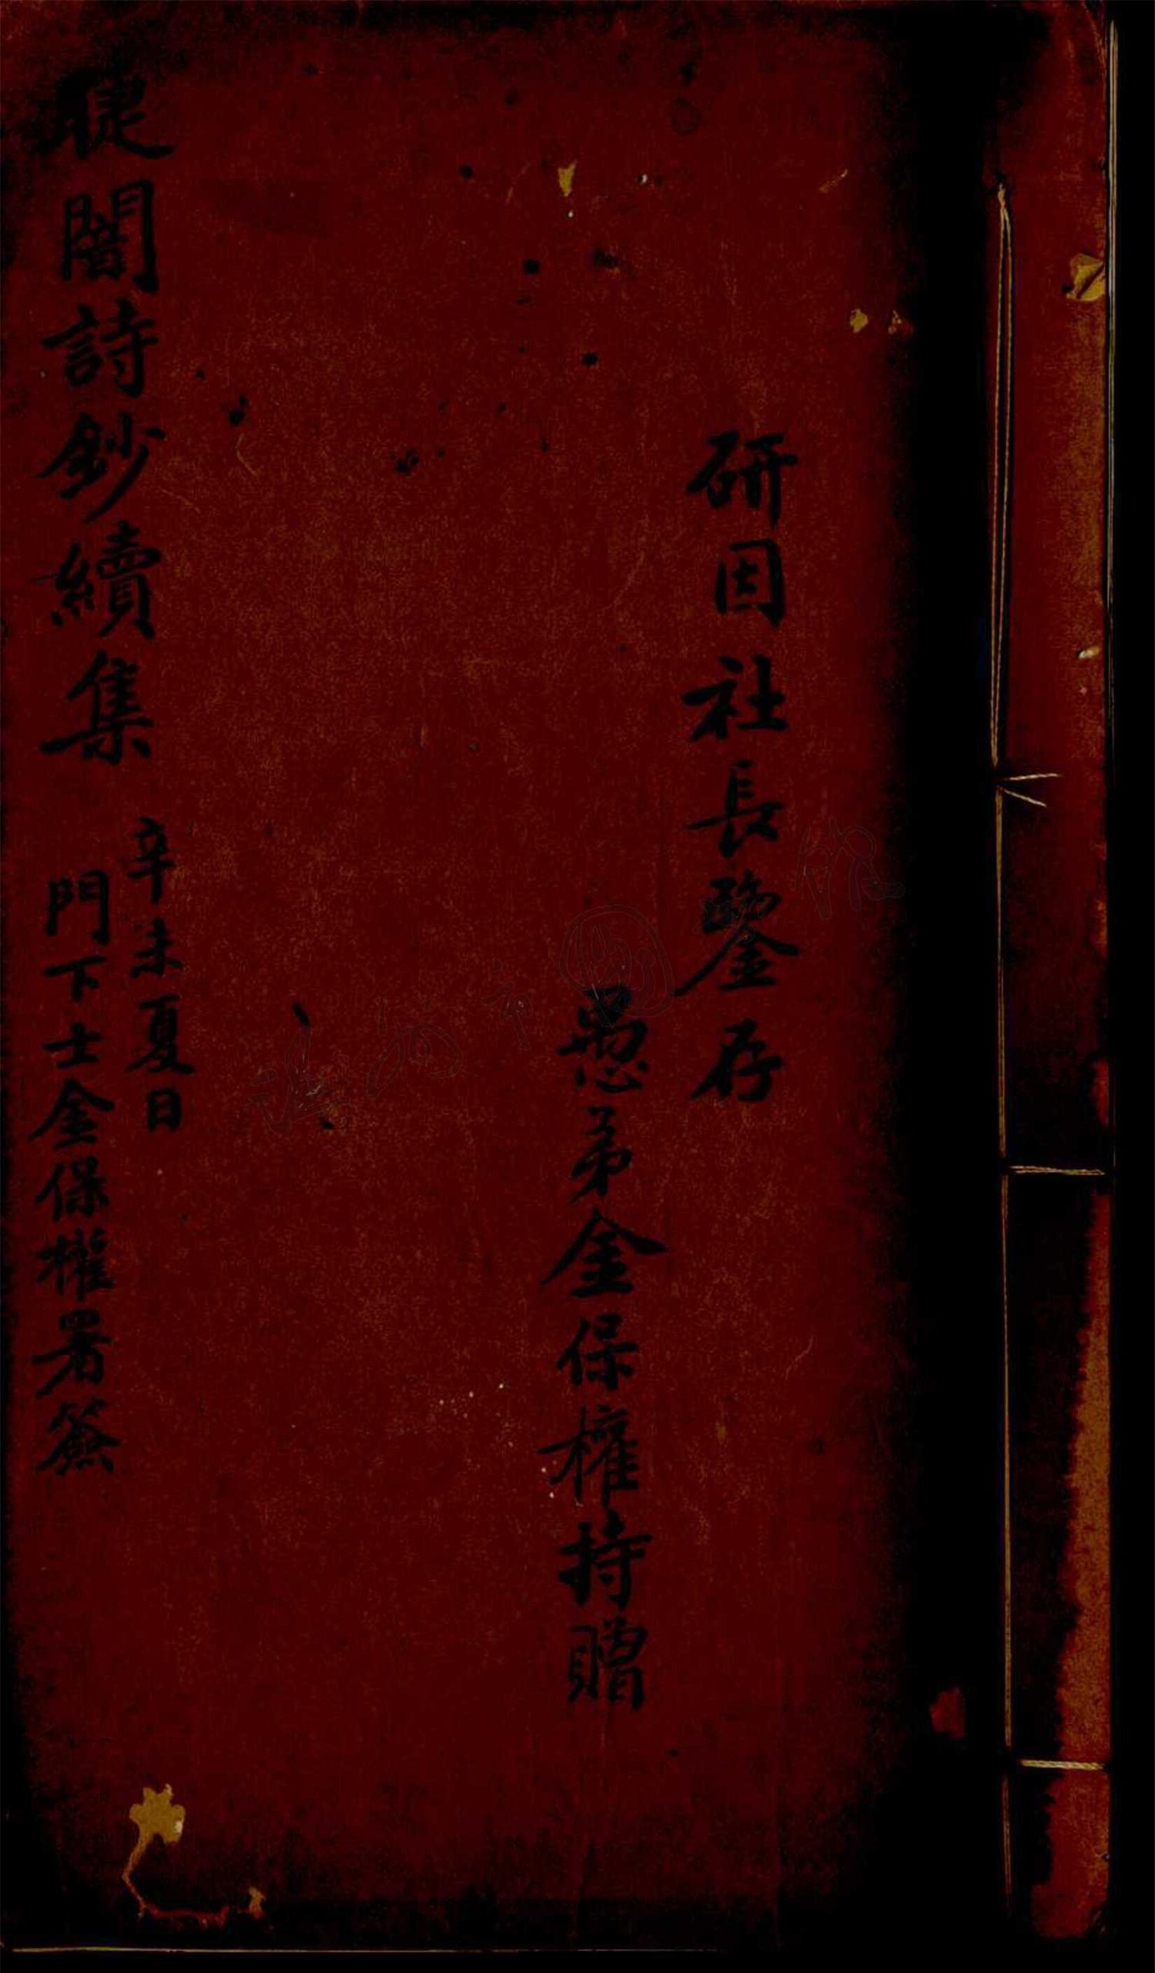 研因社長鑒存
愚弟金保權持贈
辛未夏日
睫闇詩鈔續集
門下士金保權署簽